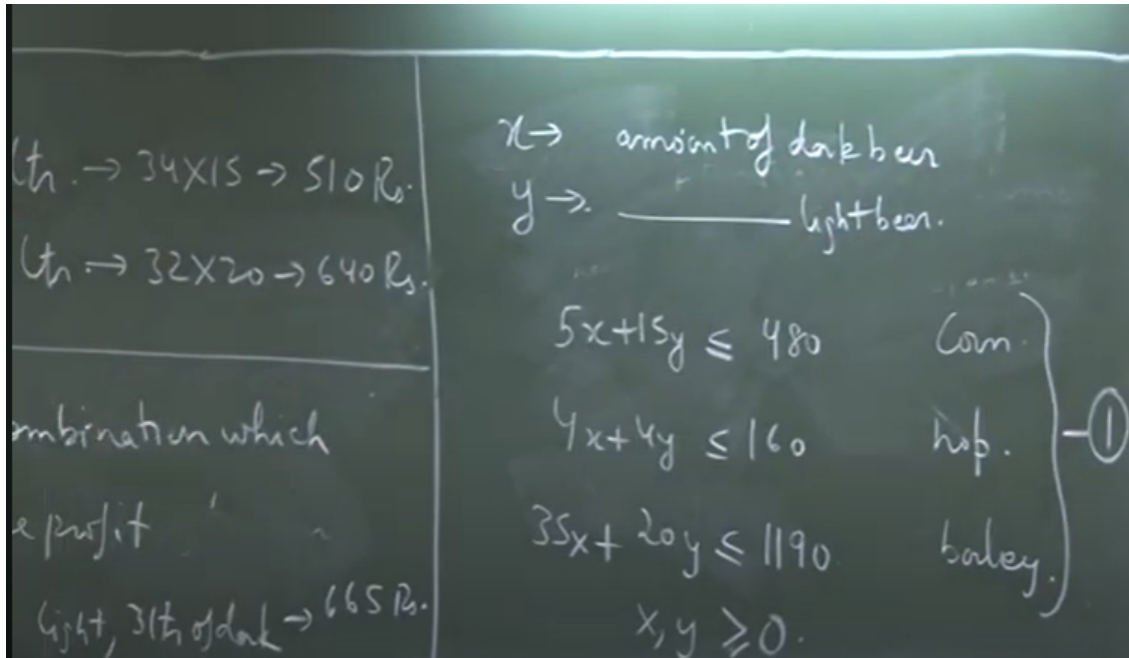 ltr. → 34X15 → 510 Rs.
ltr. → 32X20 → 640 Rs.
ombination which
e profit
light, 3ltr of dark → 665 Rs.
x → amount of dark beer
y → ———— light beer.
5x+15y ≤ 480 Corn.
4x+4y ≤ 160 hop. ①
35x+20y ≤ 1190 barley.
x, y ≥ 0.